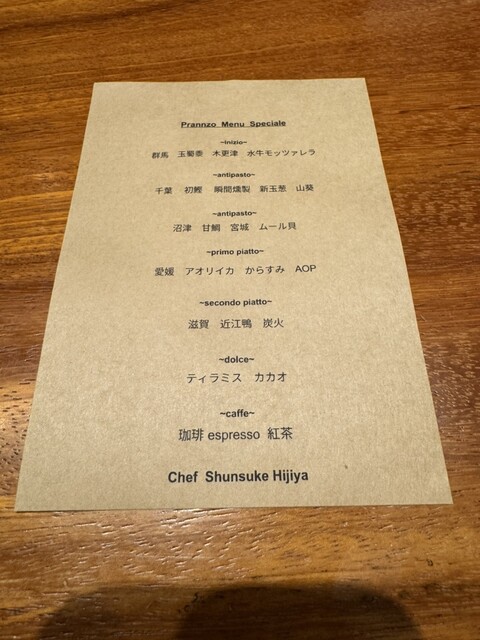 Prannzo Menu Speciale
~inizio~
群馬 玉蜀黍 木更津 水牛モッツァレラ
~antipasto~
千葉 初鰹 瞬間燻製 新玉葱 山葵
~antipasto~
沼津 甘鯛 宮城 ムール貝
~primo piatto~
愛媛 アオリイカ からすみ AOP
~secondo piatto~
滋賀 近江鴨 炭火
~dolce~
ティラミス カカオ
~caffe~
珈琲 espresso 紅茶
Chef Shunsuke Hijiya